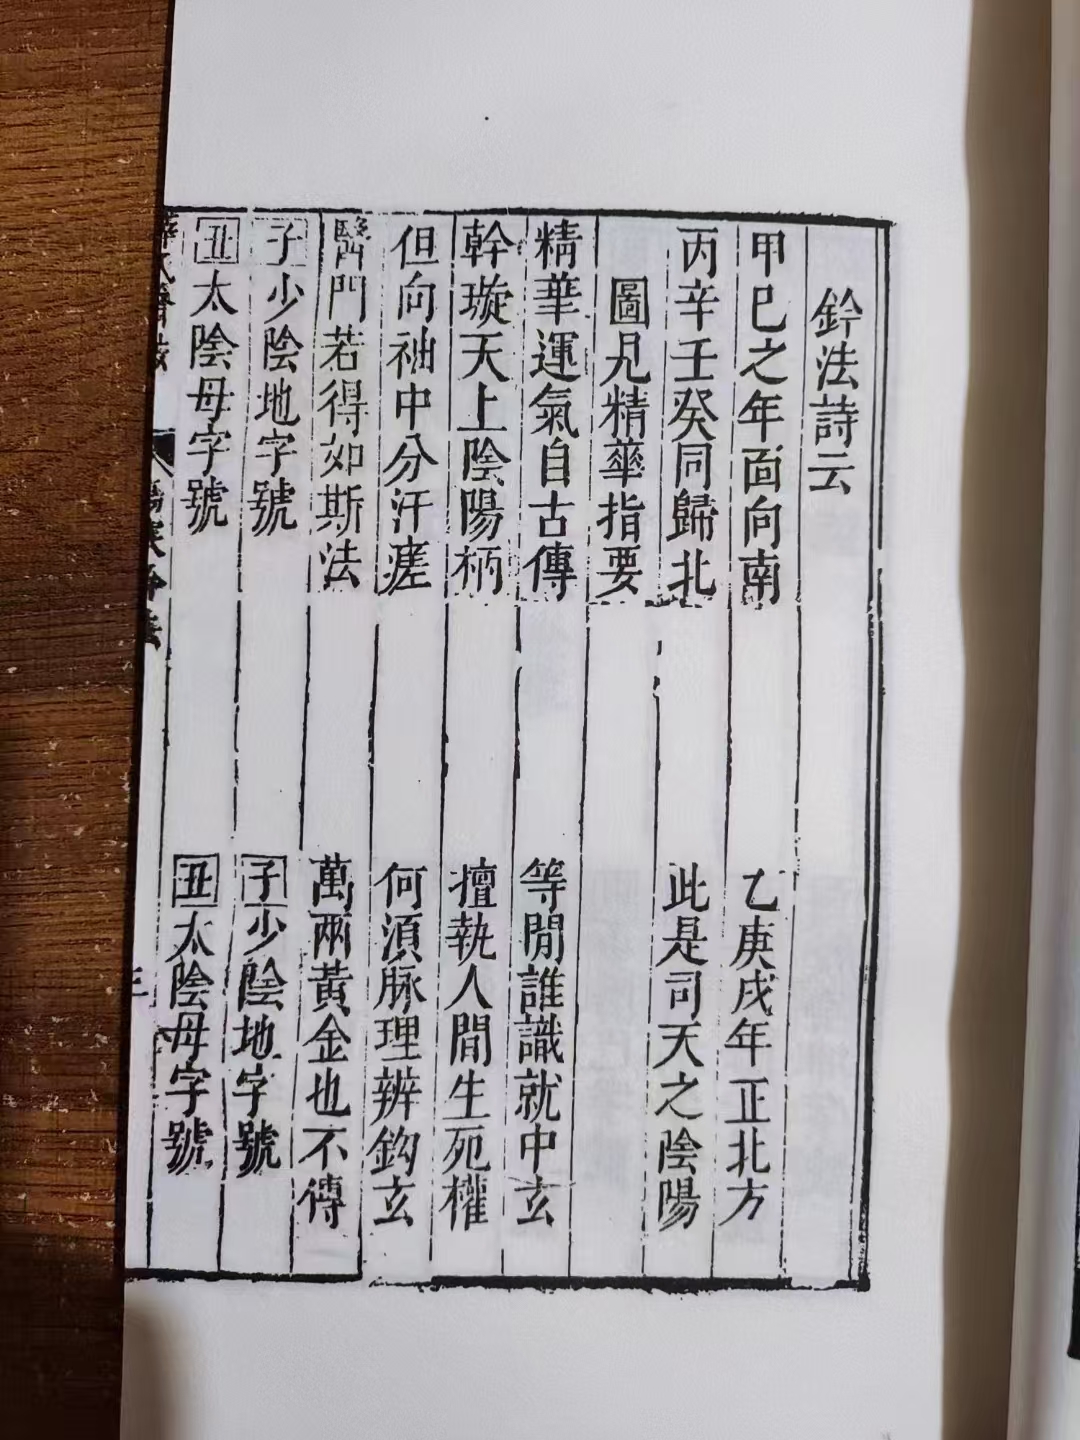 鈐法詩云
甲己之年面向南 乙庚戌年正北方
丙辛壬癸同歸北 此是司天之陰陽
圖見精華指要
精華運氣自古傳 等閒誰識就中玄
幹璇天上陰陽柄 擅執人間生死權
但向袖中分汗瘥 何須脉理辨鈎玄
醫門若得如斯法 萬兩黃金也不傳
子少陰地字號 子少陰地字號
丑太陰母字號 丑太陰母字號